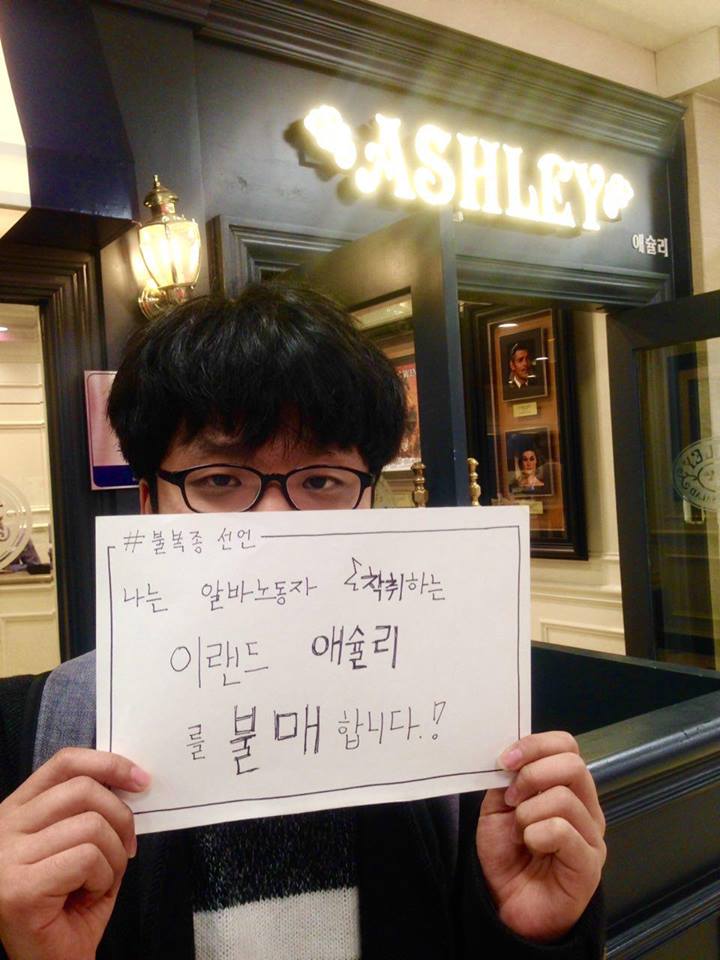 ASHLEY
애슐리
#불복종 선언
나는 알바노동자 착취하는
이랜드 애슐리
를 불매합니다.!